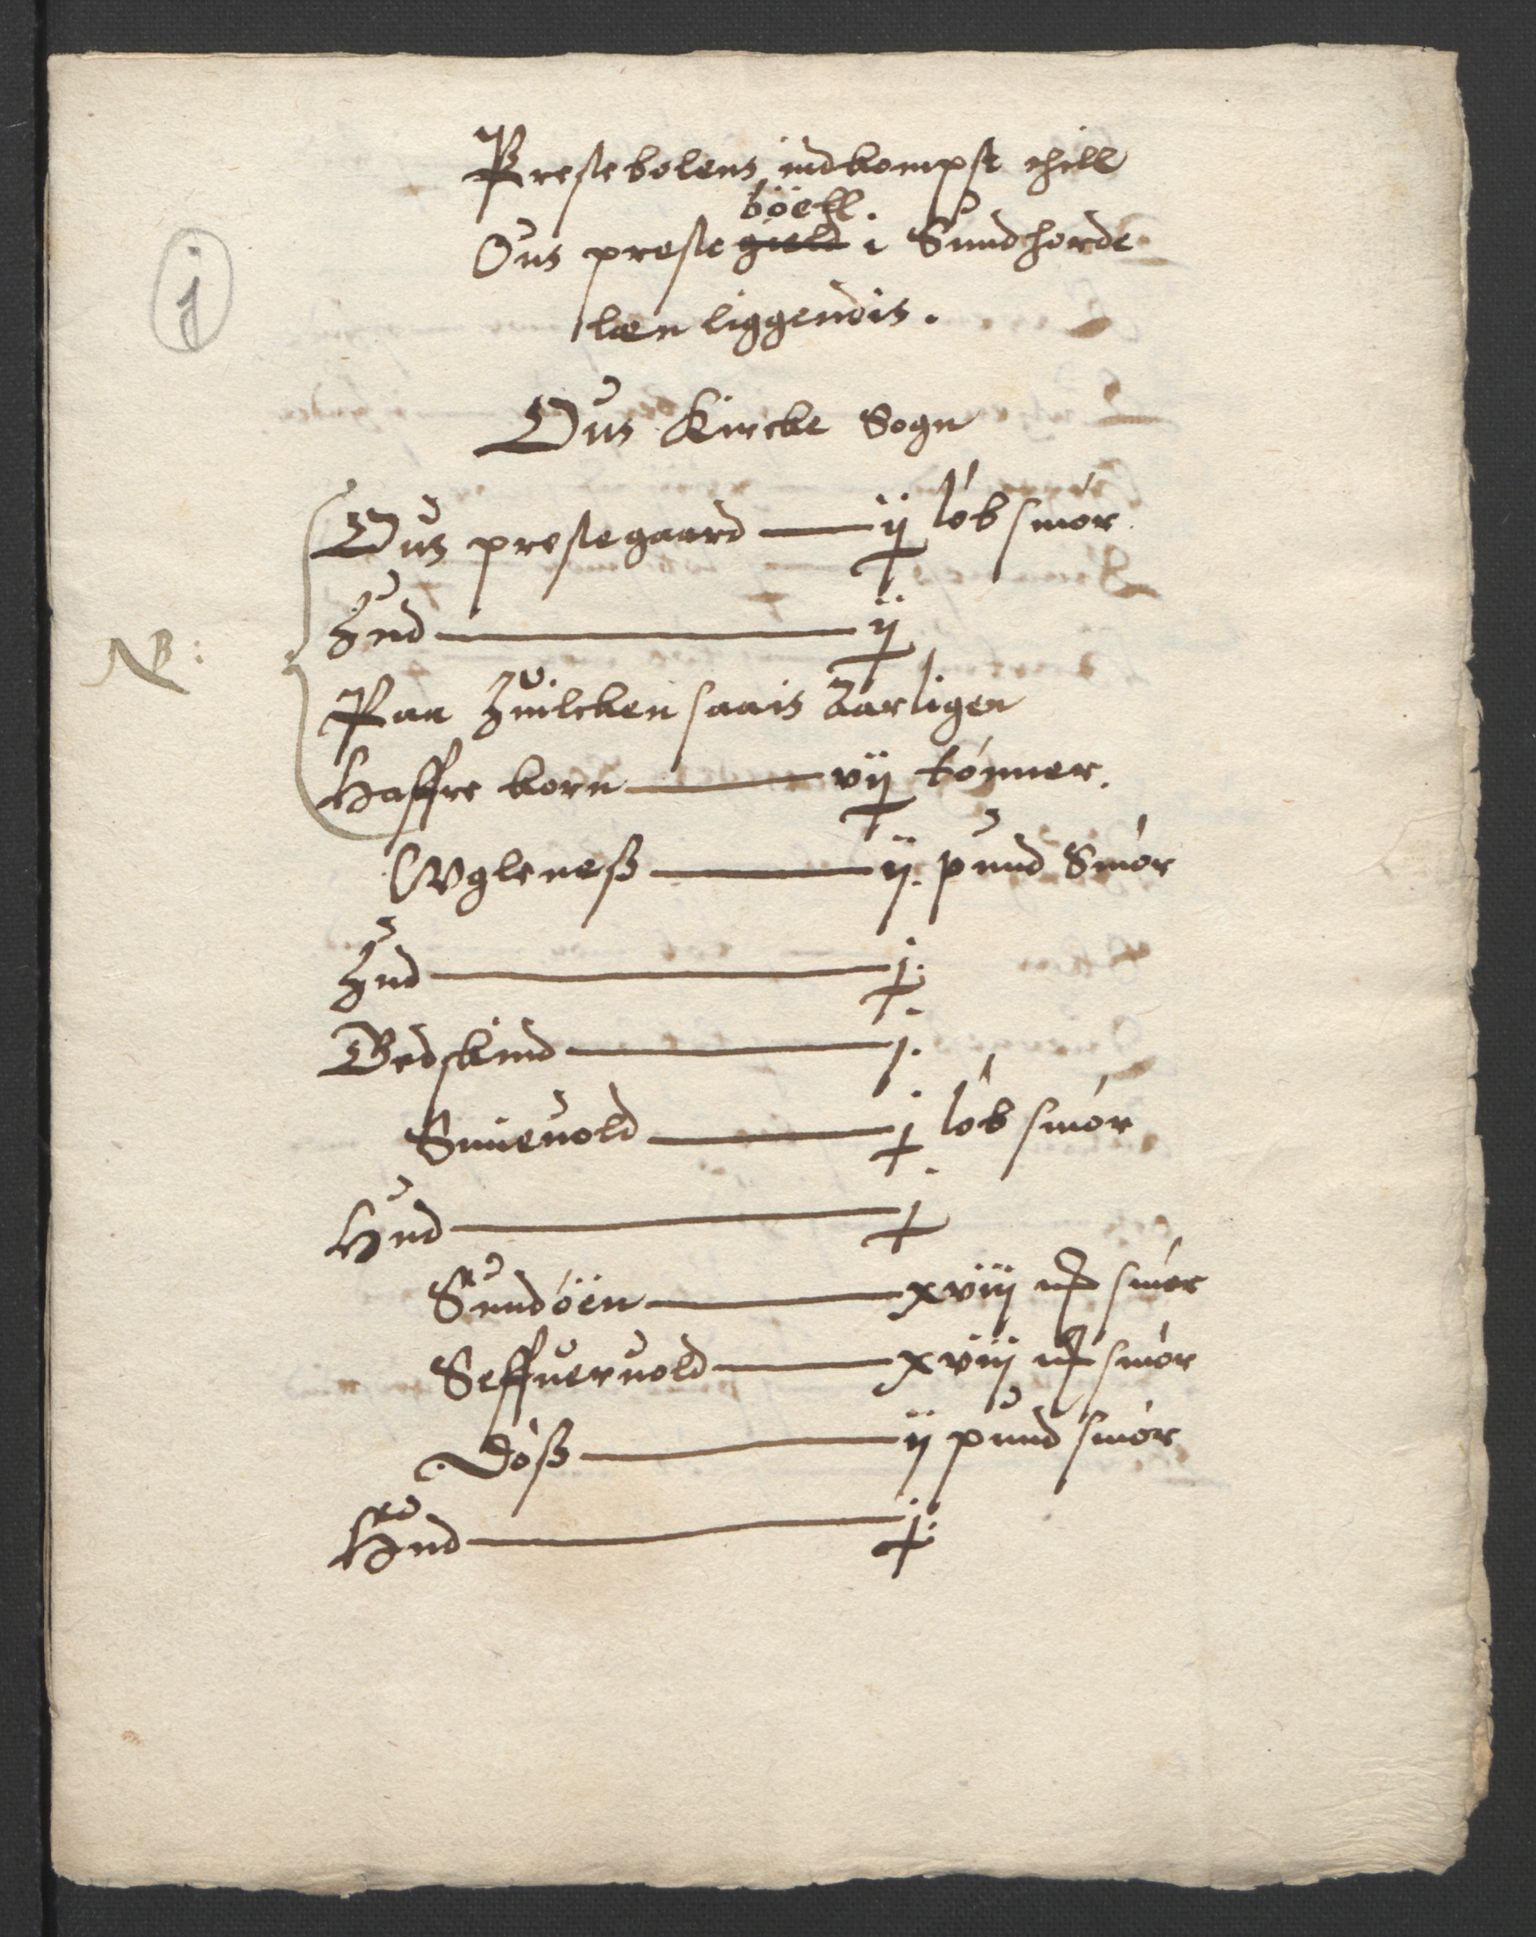 Prestebolens indkompst thill
böell.
Ous preste gield i Sundhorde
læn liggendis.
j
Ous Kircke Sogn
Ous prestegaard — ij löb smör
Hud — ij
NB:
Paa huilcken saais Aarligen
Haffre korn — vij tönner.
Ugleneß — ij. pund Smör
Hud — j.
Bodskind — j.
Sinieuold — j löb smör
Hud — j
Sundöen — xviij mk smör
Seffueruold — xviij mk smör
Döß — ij pund smör
Hud — j